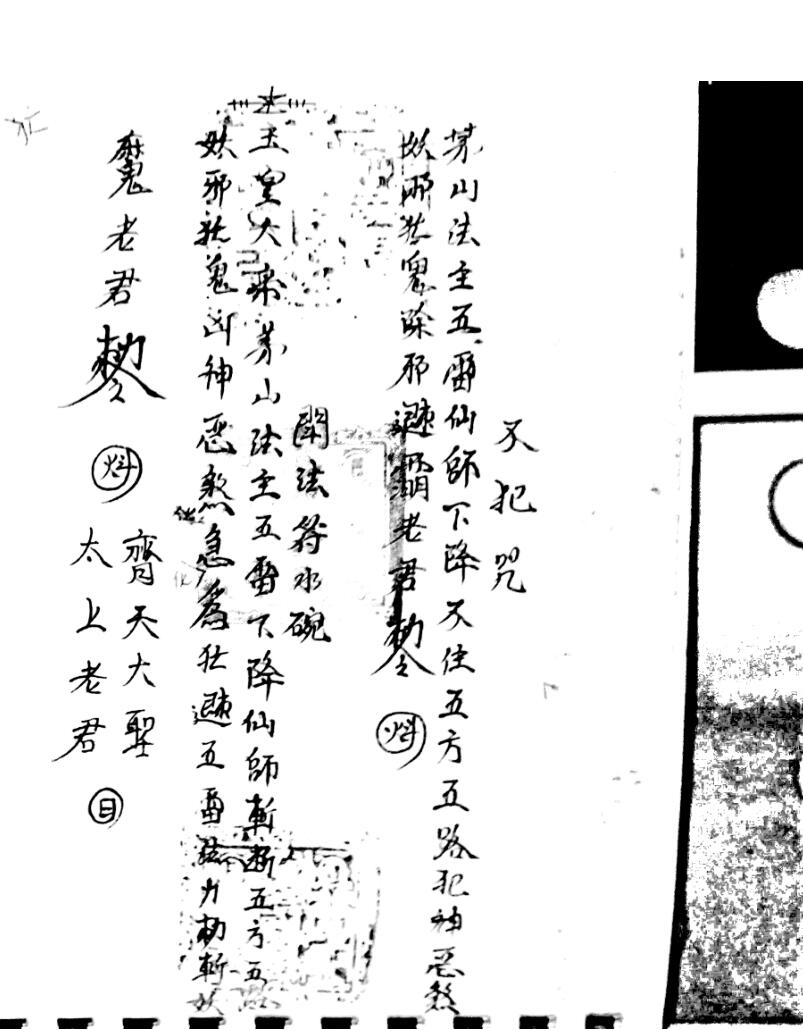 不犯咒
茅山法主五雷仙師下降不住五方五路犯神惡煞
妖邪犾鬼除邪老君勅令
開法符水碗
玉皇大茅山法主五雷下降仙師斬断五方五
妖邪犾鬼凶神惡煞急為五雷法力勅斬妖
魔老君勅令
齊天大聖
太上老君